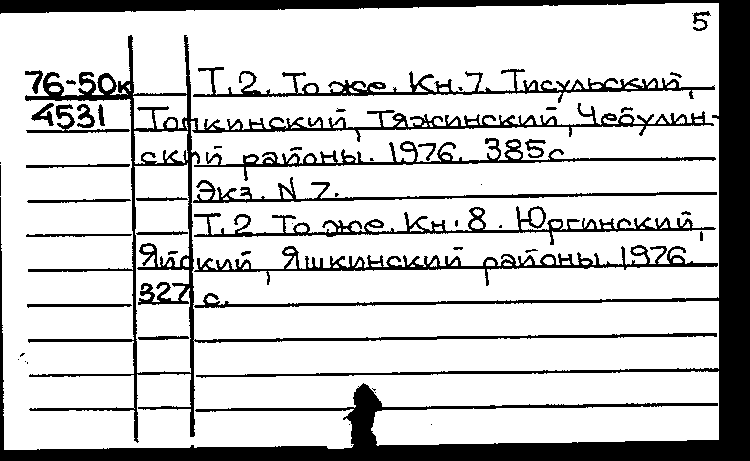 5
76-50к Т.2. То же. Кн.7. Тисульский,
4531 Топкинский, Тяжинский, Чебулин-
ский районы. 1976. 385с
Экз. N 7.
Т.2 То же. Кн.8. Юргинский,
Яйский, Яшкинский районы. 1976.
327 с.